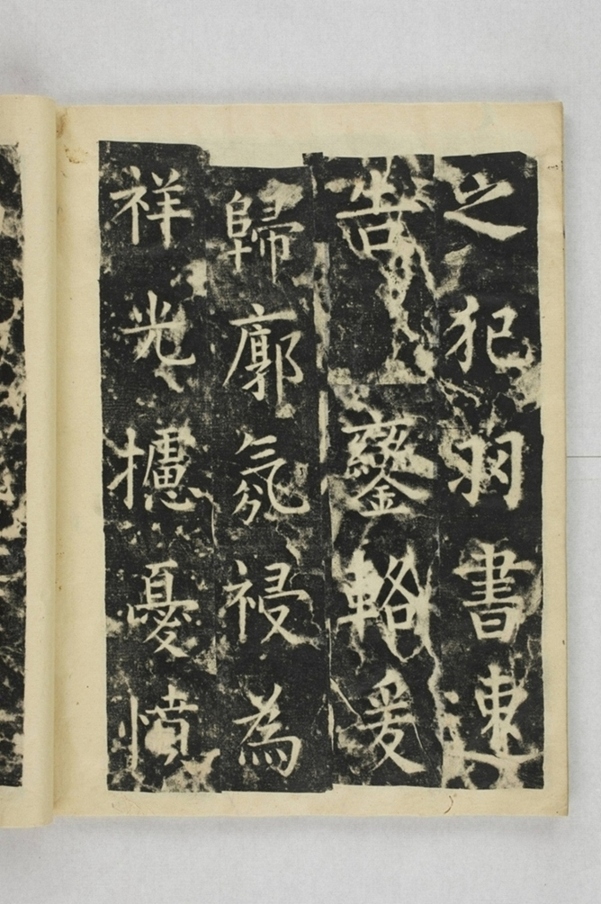 之犯羽書速
告鑾輅爰
歸廓氛祲為
祥光攄憂憤